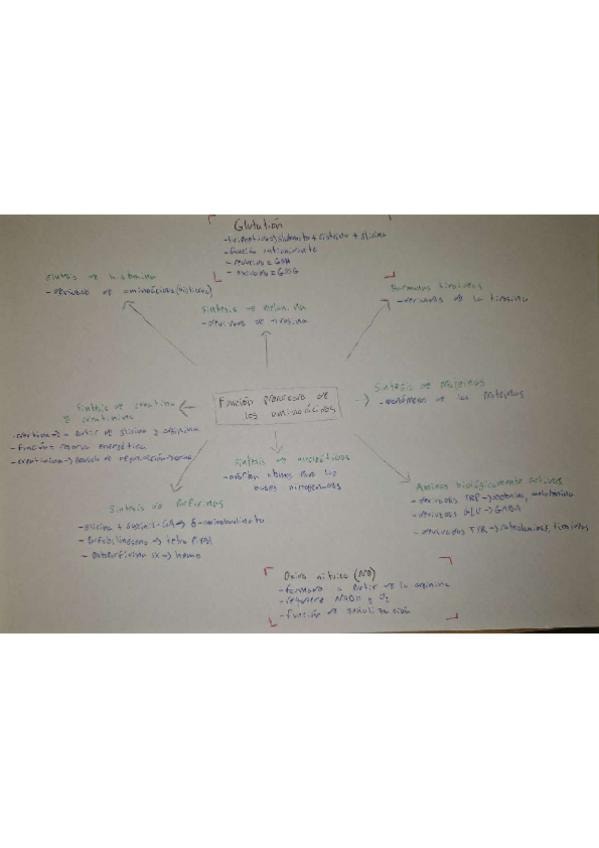 Glutatión
- tripéptido → glutamato + cisteína + glicina
- función antioxidante
- reducido = GSH
- oxidado = GSSG
Síntesis de histamina
- derivado de aminoácidos (histidina)
Síntesis de melanina
- derivados de tirosina
Hormonas tiroideas
- derivados de la tirosina
Función precursora de
los aminoácidos
Síntesis de proteínas
- monómeros de las proteínas
Síntesis de creatina
y creatinina
- creatina → a partir de glicina y arginina
- Función = reserva energética
- creatinina →
Síntesis de nucleótidos
- para las
bases nitrogenadas
Síntesis de porfirinas
- glicina + succinil-CoA → δ-aminolevulinato
- Porfobilinógeno → tetrapirrol
- Protoporfirina IX → hemo
Aminas biológicamente activas
- derivados TRP → serotonina, melatonina
- derivados GLU → GABA
- derivados TYR → catecolaminas,
Óxido nítrico (NO)
- formado a partir de la arginina
- requiere NADPH y O2
- función de señalización